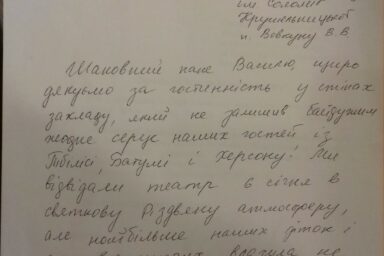 ім. Соломії
Крушельницької
п. Вовкуну В.В
Шановний пане Василю, щиро
дякуємо за гостинність у стінах
закладу, який не залишив байдужим
жодне серце наших гостей із
Тбілісі, Батумі і Херсону! Ми
відвідали театр 6 січня в
святкову Різдвяну атмосферу,
але найбільше наших діток і
вразила не